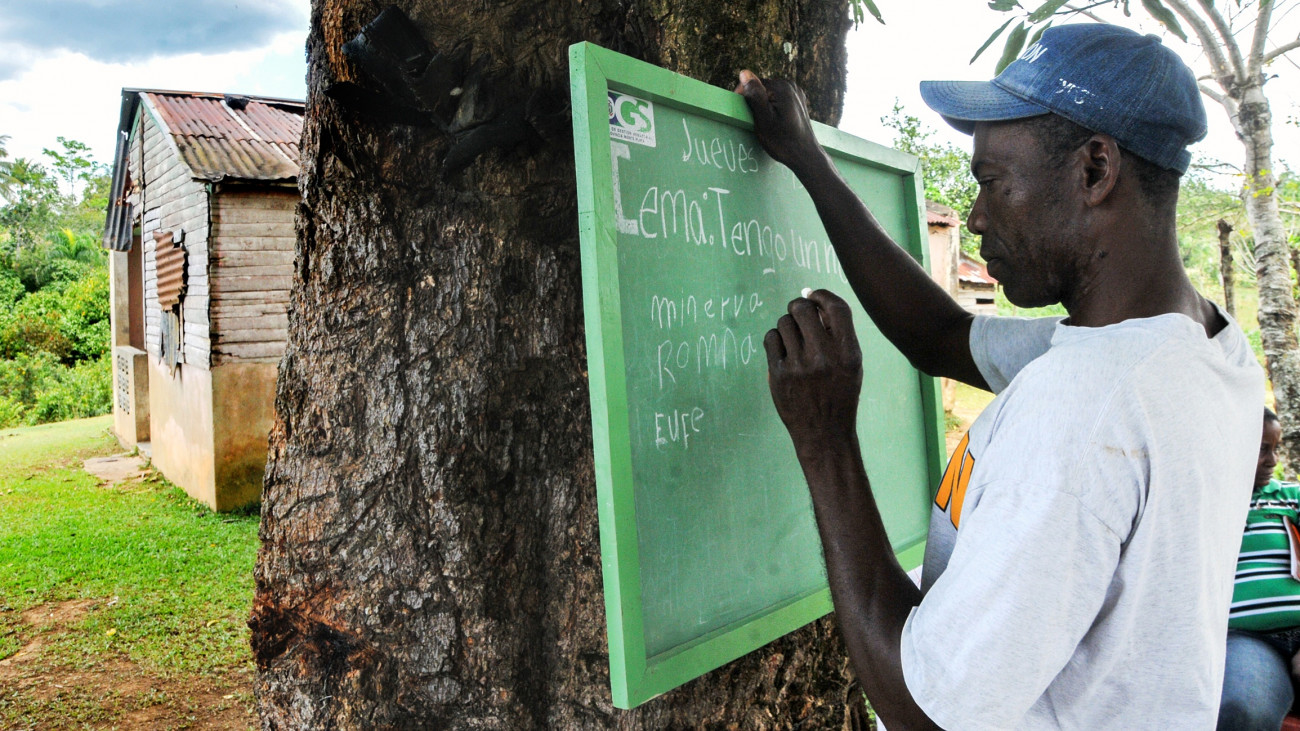 GS
Jueves
Tema: Tengo un n
minerva
Romna
Eufe
N